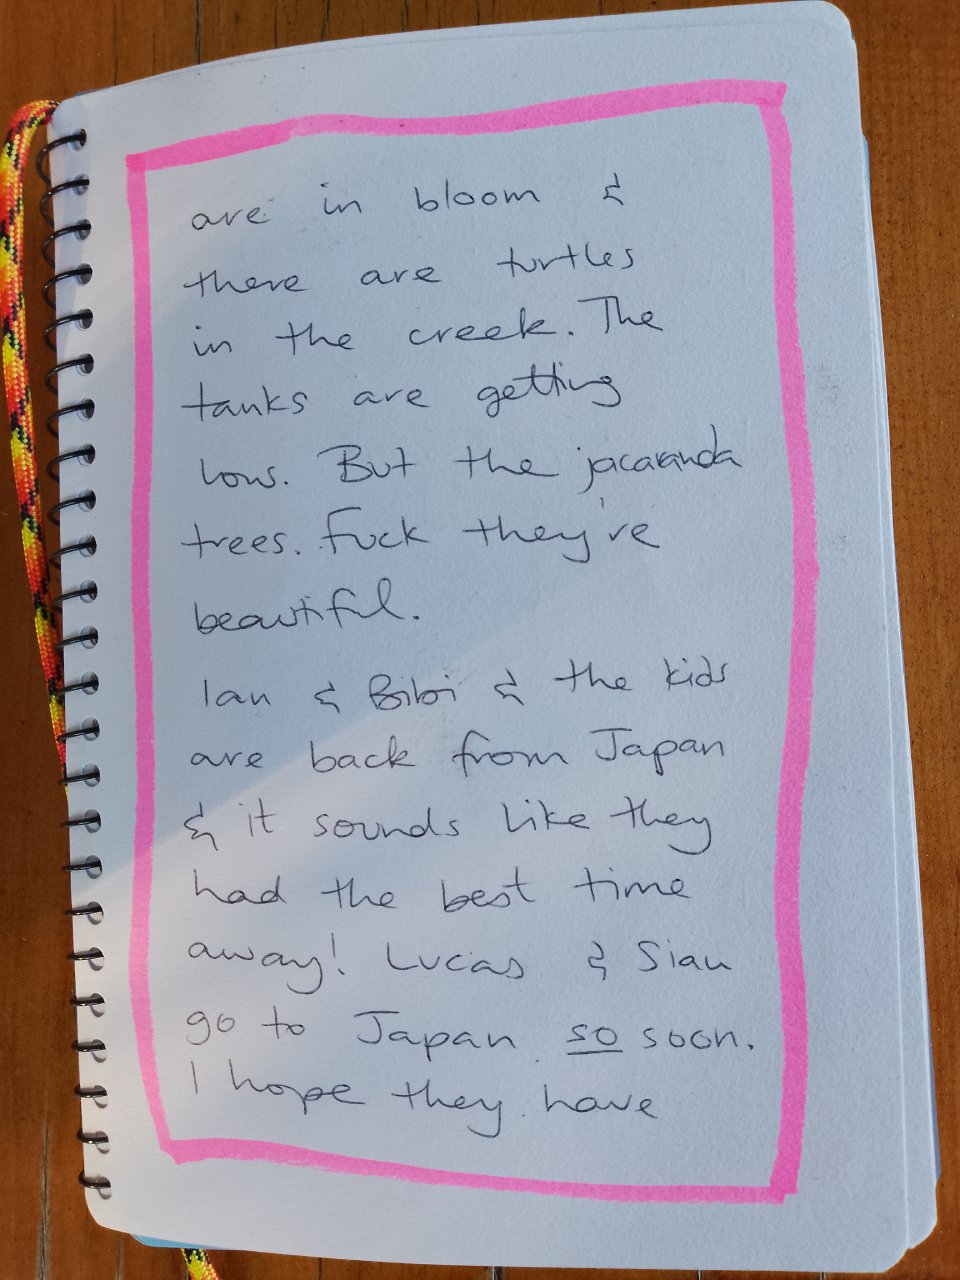 are in bloom &
there are turtles
in the creek. The
tanks are getting
low. But the jacaranda
trees. Fuck they're
beautiful.
Ian & Bibi & the kids
are back from Japan
& it sounds like they
had the best time
away! Lucas & Sian
go to Japan so soon.
I hope they have